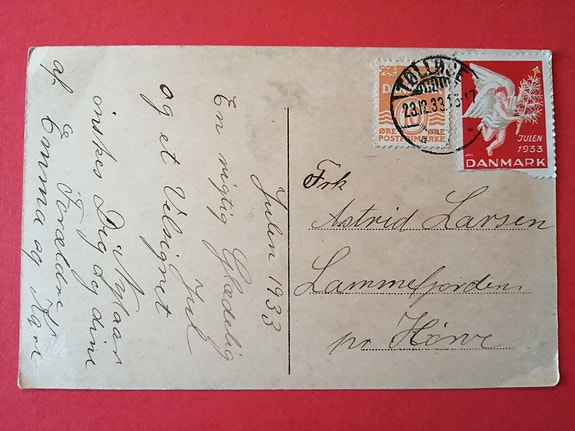 Julen 1933
En rigtig Glædelig
Jul
og et Velsignet
Nytaar
ønskes Dig og dine
Forældre
af Emma og
TØLLØSE
23.12.33.16-17
10
ØRE ØRE
POSTFRIMÆRKE
JULEN
1933
DANMARK
Frk
Astrid Larsen
Lammefjorden
pr Hørve